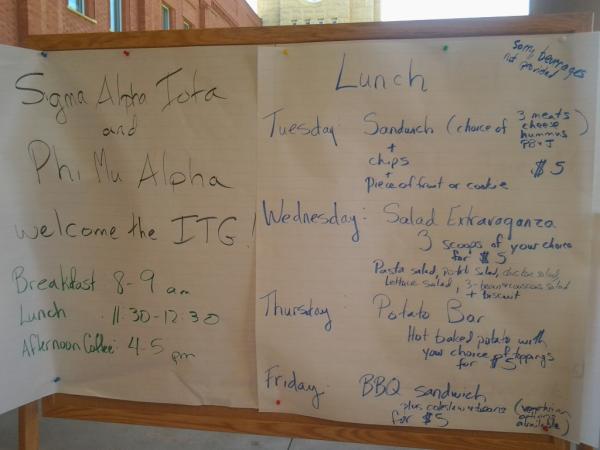 Sigma Alpha Iota
and
Phi Mu Alpha
welcome the ITG!
Breakfast 8-9 am
Lunch 11:30-12:30
Afternoon Coffee: 4-5 pm
Sorry, beverages
not provided
Lunch
Tuesday: Sandwich (choice of 3 meats
cheese
hummus
PB+J)
+
chips
+
piece of fruit or cookie
$5
Wednesday: Salad Extravaganza
3 scoops of your choice
for $5
Pasta salad, potato salad, chicken salad,
Lettuce salad, 3-bean+couscous salad
+ biscuit
Thursday: Potato Bar
Hot baked potato with
your choice of toppings
for $5
Friday: BBQ sandwich
plus coleslaw+beans
for $5
(vegetarian
options
available)